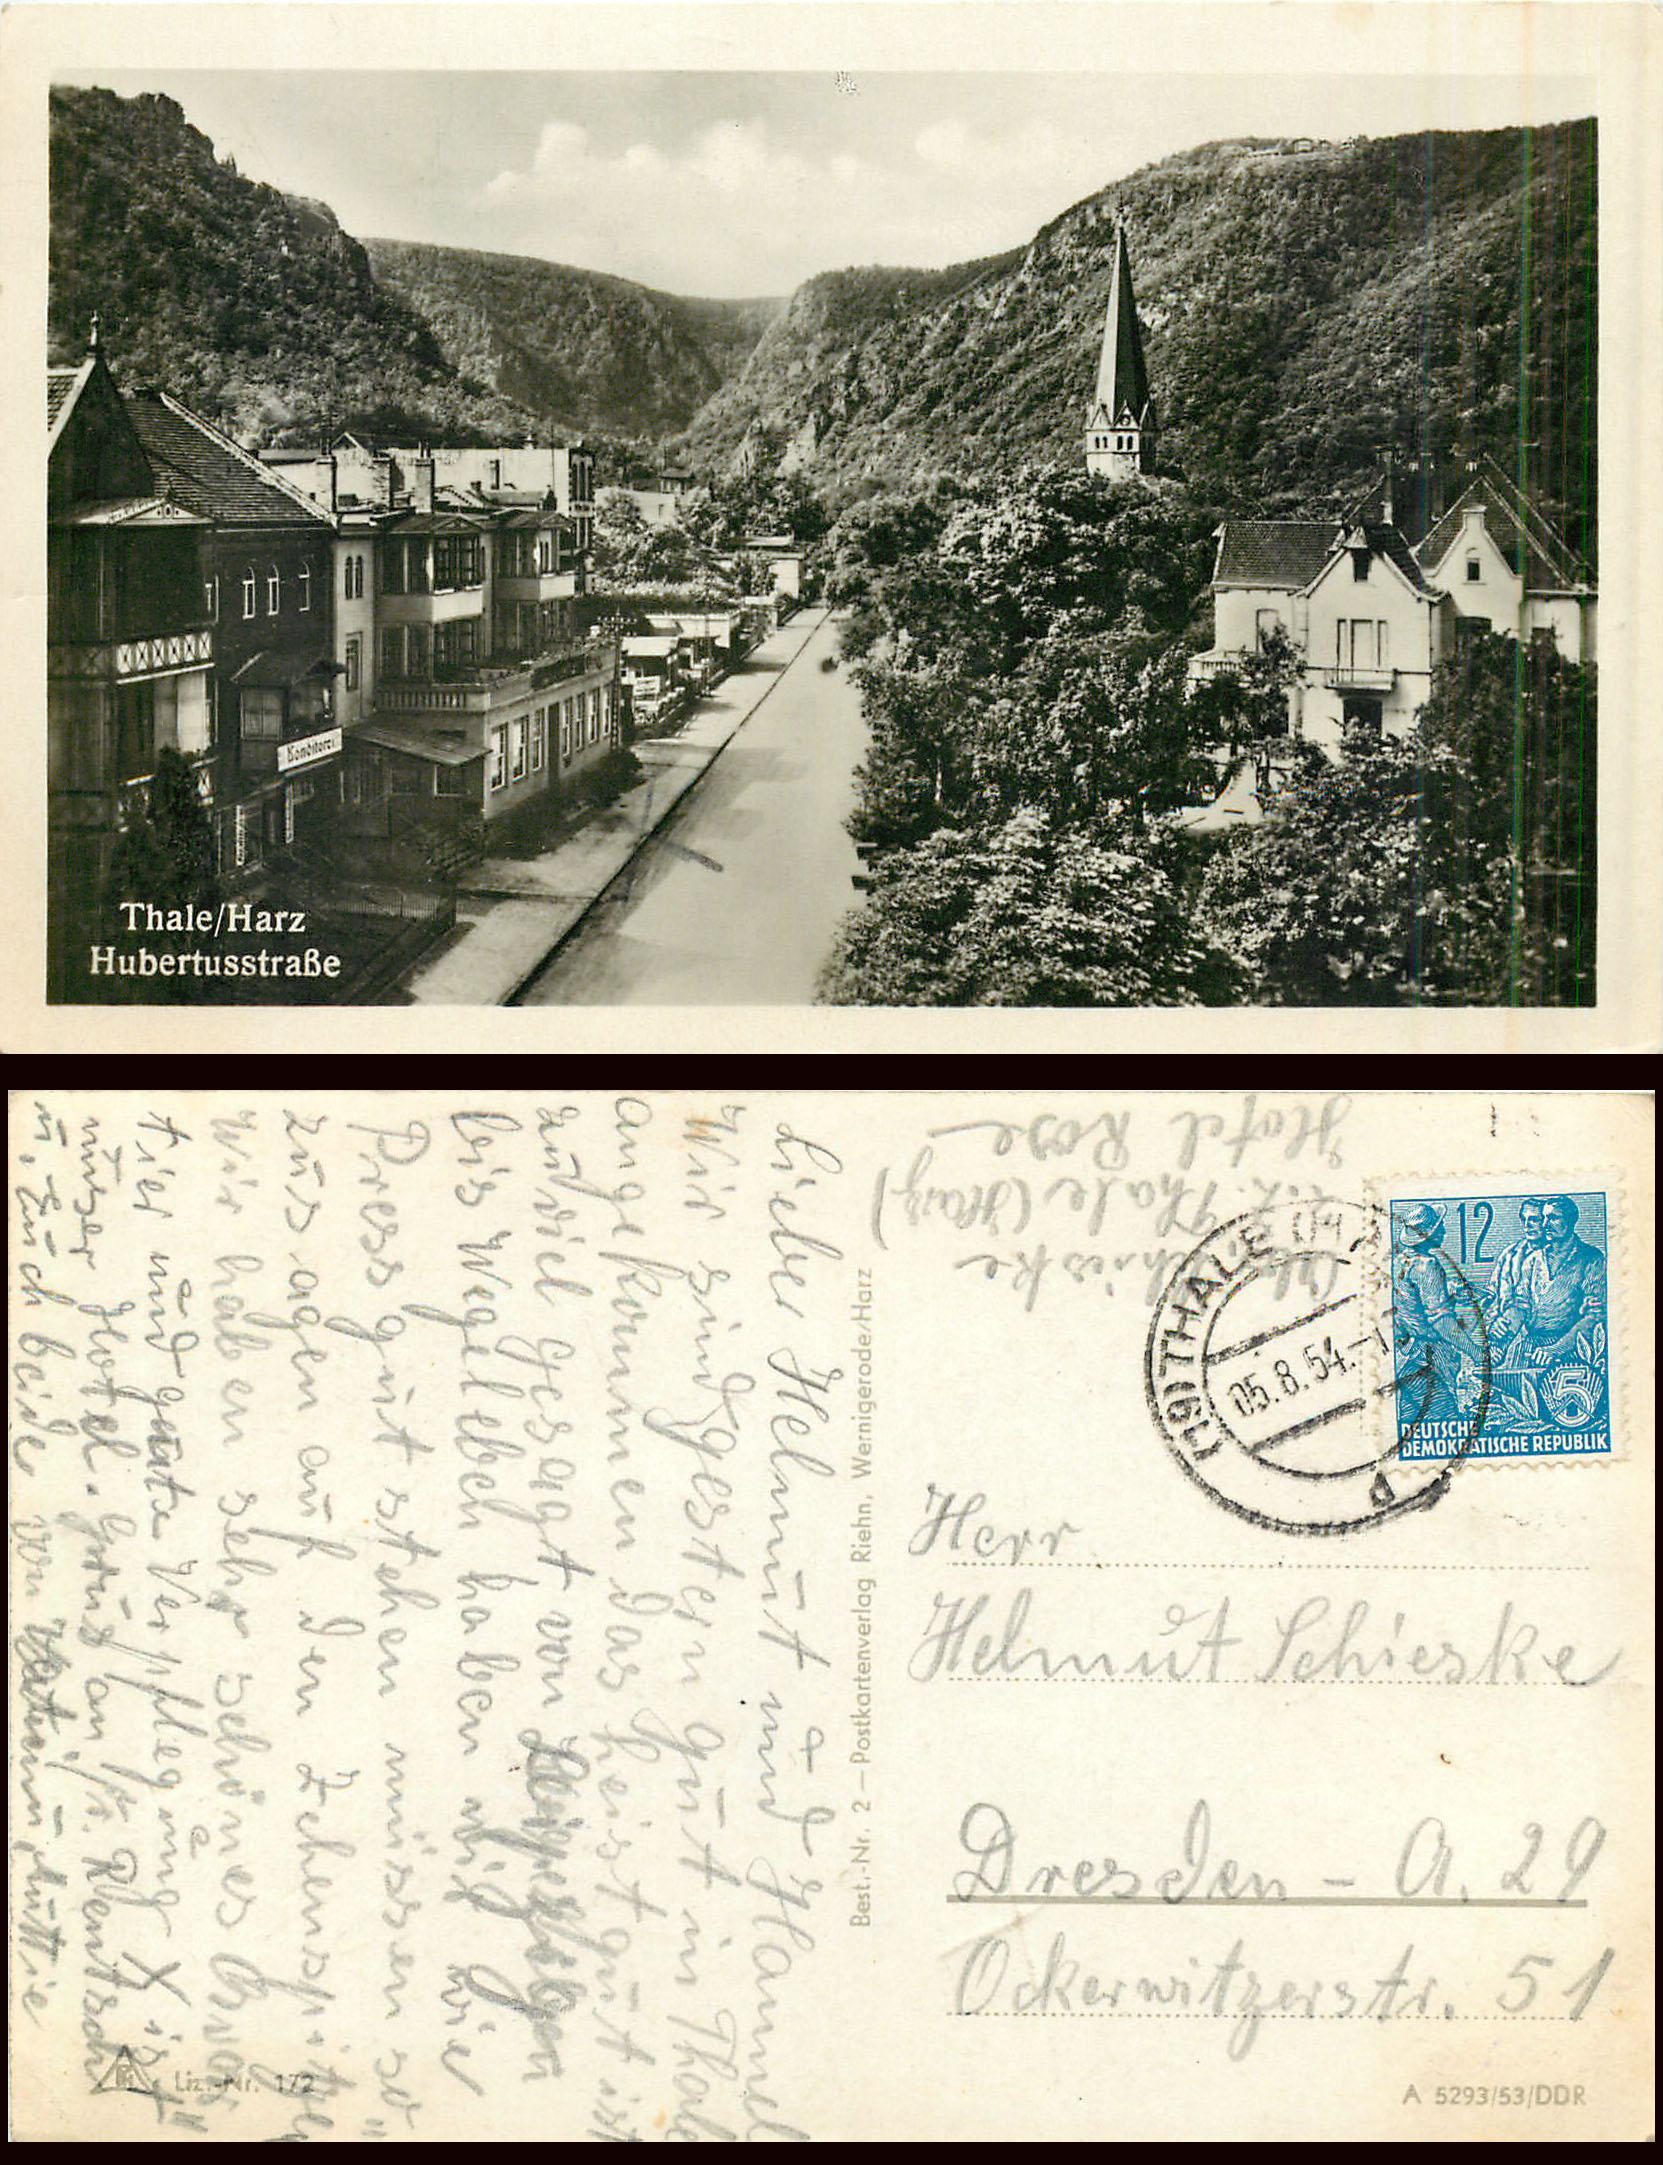 Konditorei
Thale/Harz
Hubertusstraße
Lieber Helmut und Hannel
Wir sind gestern gut in Thale
angekommen das heist gut ist
zuviel gesagt von
bis Wegeleben haben wir wie
Press gut stehen müssen so"
zusagen auf den Zehenspitzen
Wir haben sehr schönes
tier und gute Verpflegung X ist"
unser Hotel. Gruß an Fr. Rentsch
u. Euch beide von Vati und Muttie
Best.-Nr. 2 – Postkartenverlag Riehn, Wernigerode/Harz
Liz.-Nr. 172
Schieske
z.Z. Thale (Harz)
Hotel Rose
(19) THALE (HARZ)
05.8.54.-18
d
12
5
DEUTSCHE
DEMOKRATISCHE REPUBLIK
Herr
Helmut Schieske
Dresden – A. 29
Ockerwitzerstr. 51
A 5293/53/DDR